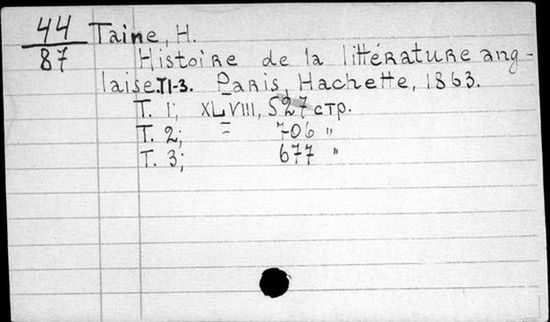 44 Taine, H.
87 Histoire de la littérature ang-
laise. T1-3. Paris, Hachette, 1863.
T. 1; XLVIII, 527 стр.
T. 2; = 706 "
T. 3; 677 "